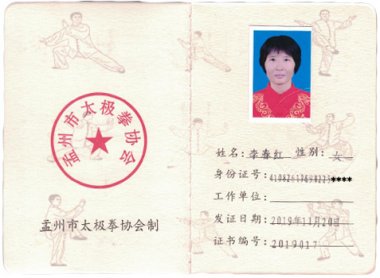 孟州市太极拳协会
孟州市太极拳协会制
姓名: 李春红 性别: 女
身份证号:
工作单位:
发证日期: 2019年11月20日
证书编号: 2019017